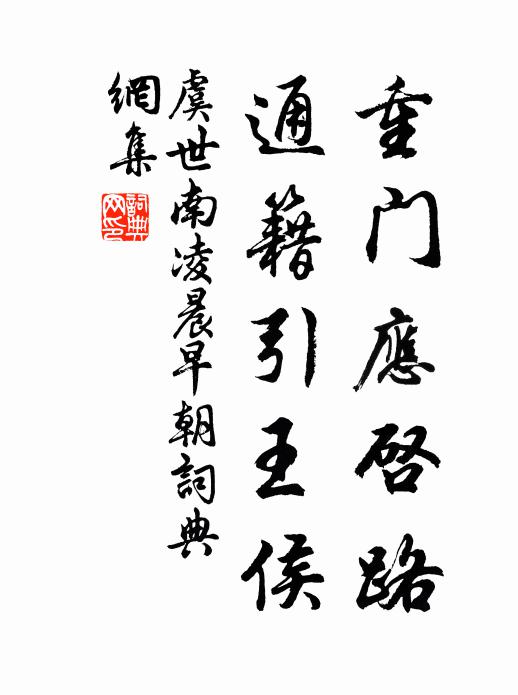 重门應啓路
通籍引王侯
虞世南凌晨早朝詞典
網集
詞典
网印